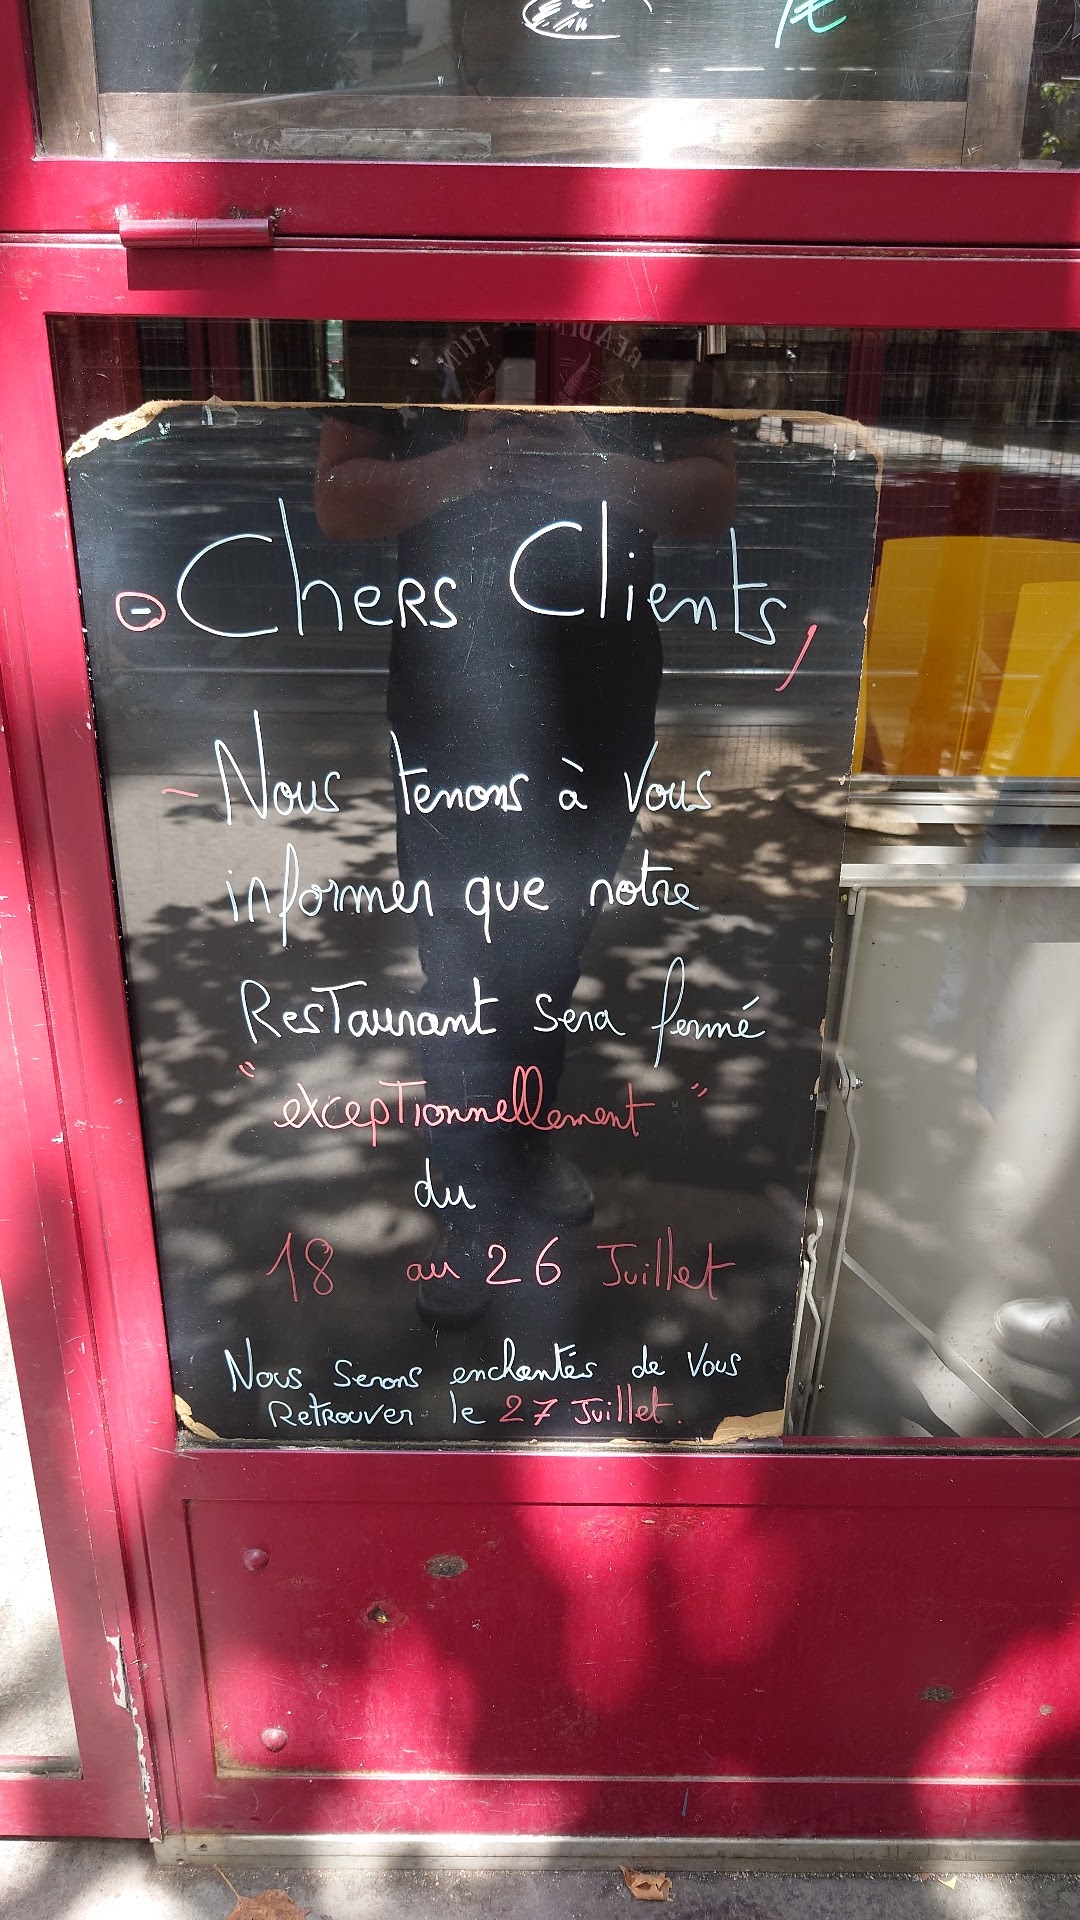 1€
- Chers Clients,
- Nous tenons à vous
informer que notre
Restaurant sera fermé
"exceptionnellement"
du
18 au 26 Juillet
Nous serons enchantés de vous
Retrouver le 27 Juillet.